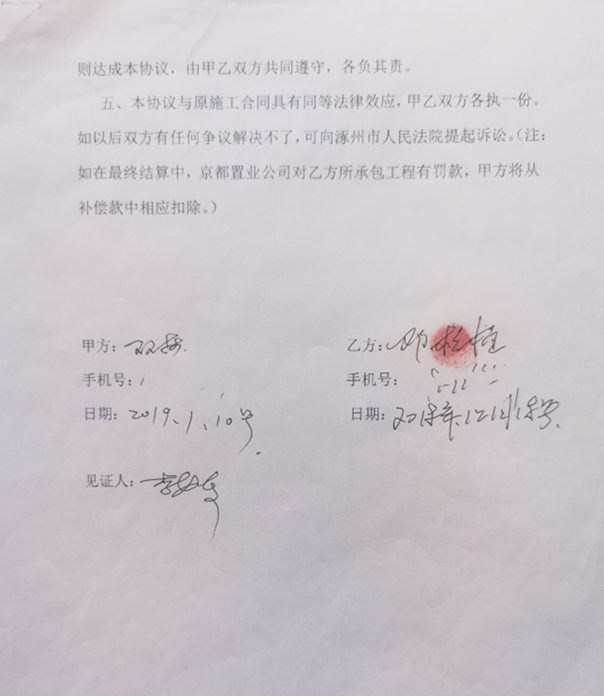 则达成本协议，由甲乙双方共同遵守，各负其责。
五、本协议与原施工合同具有同等法律效应，甲乙双方各执一份。
如以后双方有任何争议解决不了，可向涿州市人民法院提起诉讼。（注：
如在最终结算中，京都置业公司对乙方所承包工程有罚款，甲方将从
补偿款中相应扣除。）
甲方：
乙方：
手机号：
手机号：
日期：2019.1.10号
日期：
见证人：